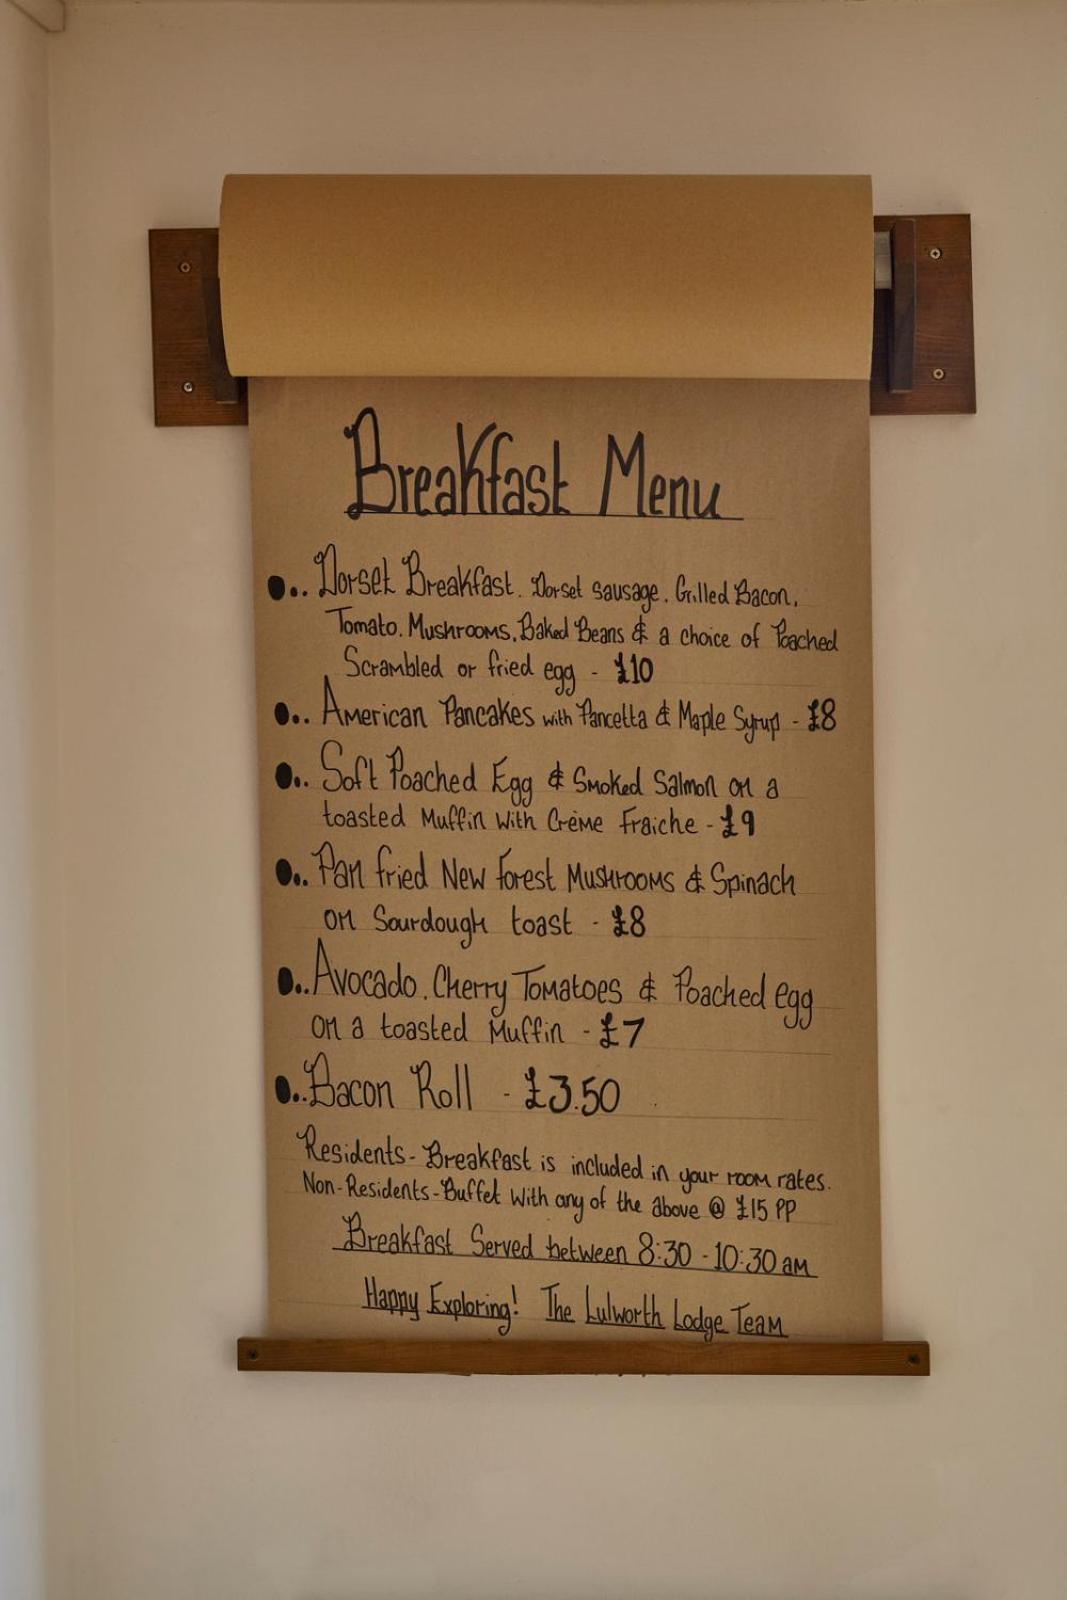 Breakfast Menu
Dorset Breakfast. Dorset sausage. Grilled Bacon,
Tomato. Mushrooms, Baked Beans & a choice of Poached
Scrambled or fried egg - £10
American Pancakes with Pancetta & Maple Syrup - £8
Soft Poached Egg & Smoked Salmon on a
toasted Muffin with Crème Fraiche - £9
Pan fried New Forest Mushrooms & Spinach
on Sourdough toast - £8
Avocado, Cherry Tomatoes & Poached egg
on a toasted Muffin - £7
Bacon Roll - £3.50
Residents - Breakfast is included in your room rates.
Non-Residents - Buffet with any of the above @ £15 PP
Breakfast Served between 8:30 - 10:30 am
Happy Exploring! The Lulworth Lodge Team